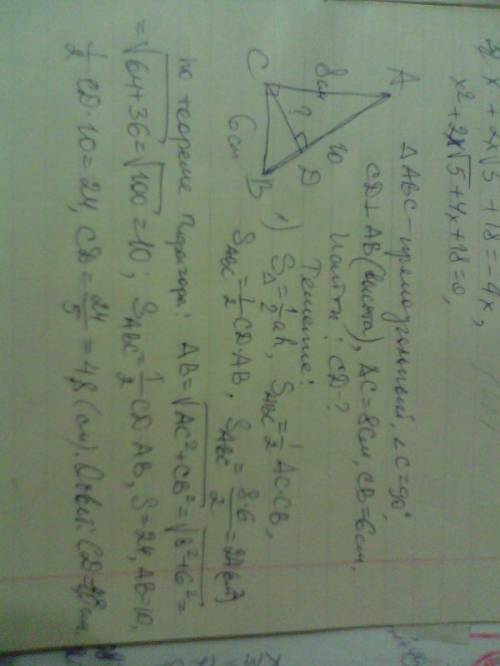 x² + 2x√5 + 18 = -4x,
x² + 2x√5 + 4x + 18 = 0,
A
8см
10
?
D
C
6см
B
ΔABC - прямоугольный, ∠C = 90°,
CD⊥AB (высота), AC = 8см, CB = 6см.
Найти: CD - ?
Решение:
1) S△ = 1/2 ah, S_ABC = 1/2 AC·CB,
S_ABC = 1/2 CD·AB, S_ABC = 8·6/2 = 24 (см²)
по теореме Пифагора: AB = √AC² + CB² = √8² + 6² =
= √64 + 36 = √100 = 10; S_ABC = 1/2 CD·AB, S = 24, AB = 10,
1/2 CD·10 = 24, CD = 24/5 = 4,8 (см). Ответ: CD = 4,8 см